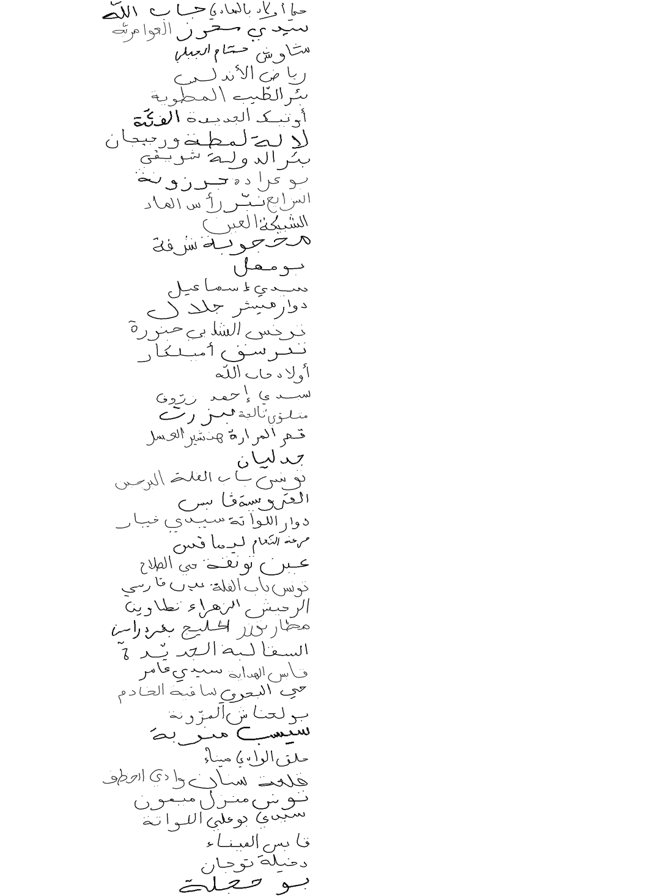 حي أولاد بالهادي جاب الله
سيدي سحون العوامرية
شاوش هشام الجبلي
رياض الأندلس
بئر الطيب المطوية
أوتيك الجديدة الفتة
لالة لمطة ورجيجان
بئر الدولة شريفي
بوعرادة حرزونة
السرايع نبر رأس الماد
الشبيكة العين
محجوبة شرفة
بومهل
سيدي إسماعيل
دوار هيشر جلال
نرجس الشابي حنورة
تبرسق أميلكار
أولاد جاب الله
سيدي إحمد زروق
منلوق تالية بنزرت
قصر المرارة هنشير العسل
جدليان
تونس باب الفلة النرجس
العروسة قابس
دوار اللواتة سيدي خيار
مرحة النعام ليماقس
عين تونقة حي الطلاح
تونس باب الفلة عين فارسي
الرحيش الزهراء تطاوين
مطار توزر الخليج بحردراسن
السقالبة الجديدة
فاس الهداية سيدي عامر
حي البحري ساقية الخادم
بولحناش المزونة
سيسب منوبة
حلق الوادي ميناء
قلعة سنان وادي الحطو
تونس منزل ميمون
سيدي بوعلي اللواتة
قابس الميناء
دخيلة توجان
بوحجلة